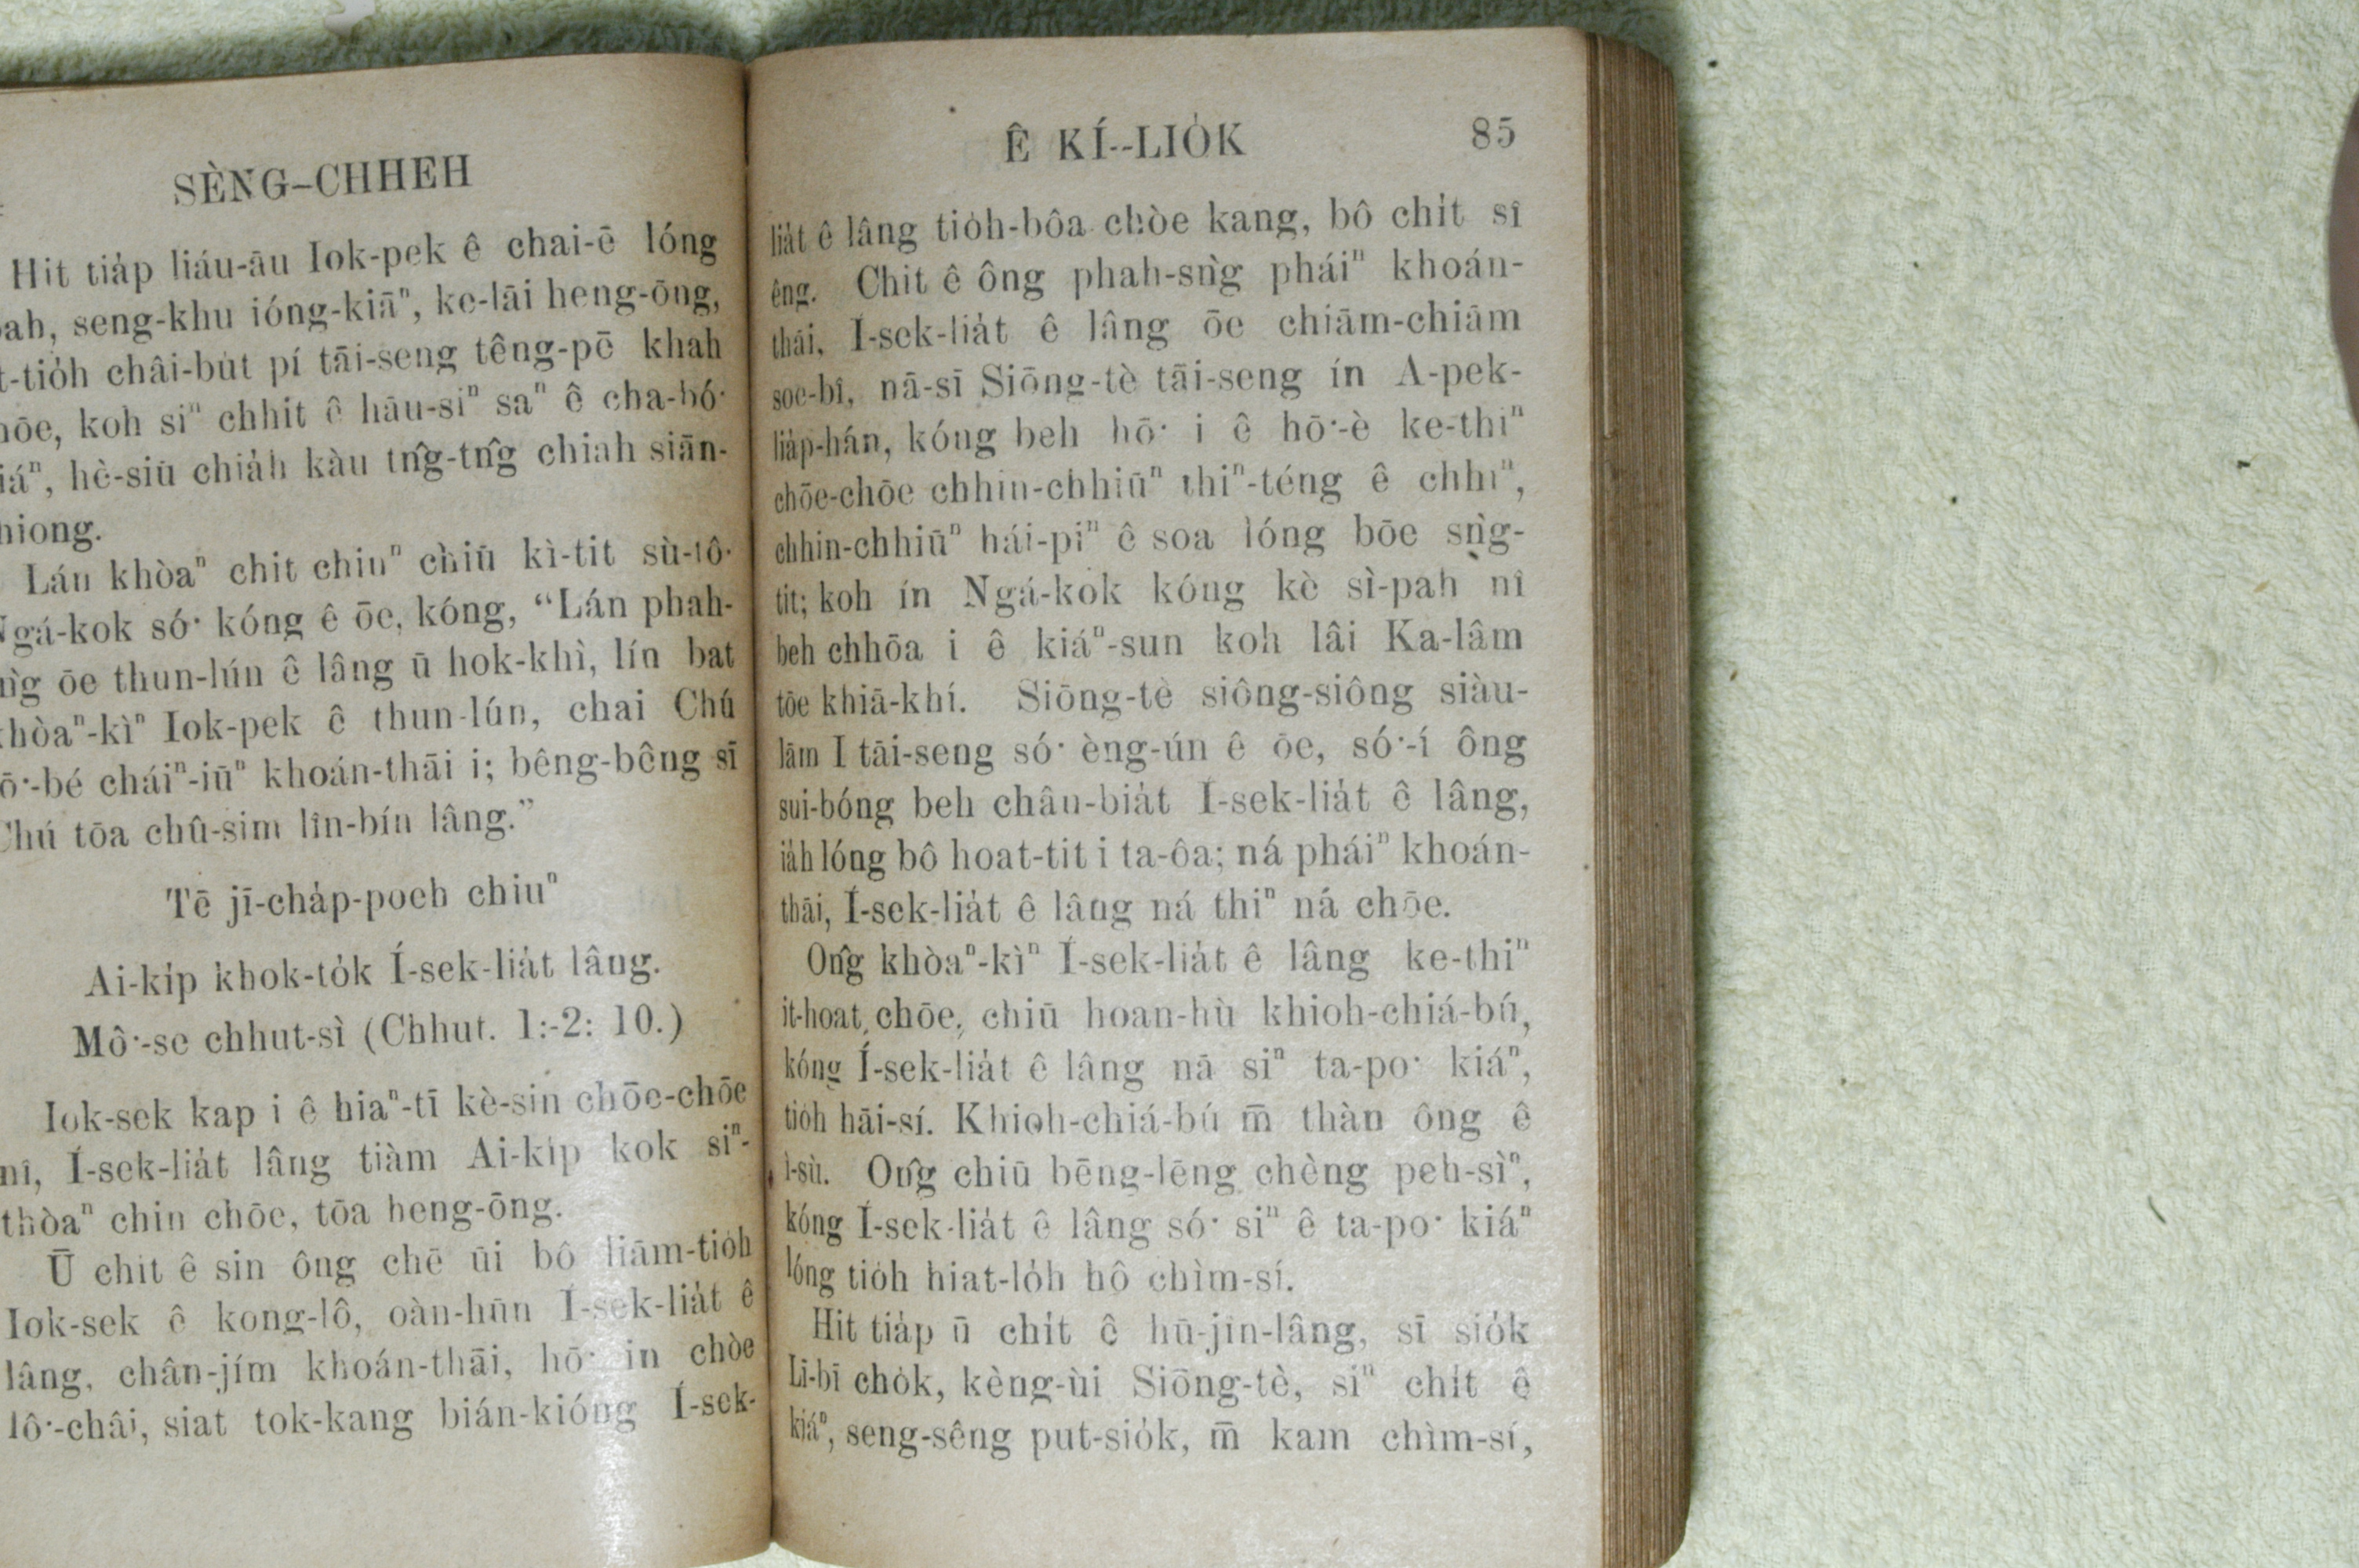 SÈNG-CHHEH
Hit tia̍p liáu-āu Iok-pek ê chai-ē lóng
seng-khu ióng-kiāⁿ, ke-lāi heng-ōng,
châi-bu̍t pí tāi-seng têng-pē khah
koh siⁿ chhit ê hāu-siⁿ saⁿ ê cha-bó͘
hè-siū chia̍h kàu tn̂g-tn̂g chiah siān-
Lán khòaⁿ chit chiuⁿ chiū kì-tit sù-tô͘
Ngá-kok só͘ kóng ê ōe, kóng, “Lán phah-
ōe thun-lún ê lâng ū hok-khì, lín bat
khòaⁿ-kìⁿ Iok-pek ê thun-lún, chai Chú
cháiⁿ-iūⁿ khoán-thāi i; bêng-bêng sī
Chú tōa chû-sim lîn-bín lâng.”
Tē jī-cha̍p-poeh chiuⁿ
Ai-ki̍p khok-to̍k Í-sek-lia̍t lâng.
Mô͘-se chhut-sì (Chhut. 1:-2: 10.)
Iok-sek kap i ê hiaⁿ-tī kè-sin chōe-chōe
nî, Í-sek-lia̍t lâng tiàm Ai-ki̍p kok siⁿ-
thòaⁿ chin chōe, tōa heng-ōng.
Ū chi̍t ê sin ông chē ūi bô liām-tio̍h
Iok-sek ê kong-lô, oàn-hūn Í-sek-lia̍t ê
lâng, chân-jím khoán-thāi, hō͘ in chòe
lô͘-châi, siat tok-kang bián-kióng Í-sek-
Ê KÍ--LIO̍K 85
lia̍t ê lâng tio̍h-bôa chòe kang, bô chi̍t sî
êng. Chit ê ông phah-sǹg pháiⁿ khoán-
thāi, Í-sek-lia̍t ê lâng ōe chiām-chiām
soe-bî, nā-sī Siōng-tè tāi-seng ín A-pek-
lia̍p-hán, kóng beh hō͘ i ê hō͘-è ke-thiⁿ
chōe-chōe chhin-chhiūⁿ thiⁿ-téng ê chhiⁿ,
chhin-chhiūⁿ hái-piⁿ ê soa lóng bōe sǹg-
tit; koh ín Ngá-kok kóng kè sì-pah nî
beh chhōa i ê kiáⁿ-sun koh lâi Ka-lâm
tōe khiā-khí. Siōng-tè siông-siông siàu-
lām I tāi-seng só͘ èng-ún ê ōe, só͘-í ông
sui-bóng beh châu-bia̍t Í-sek-lia̍t ê lâng,
ia̍h lóng bô hoat-tit i ta-ôa; ná pháiⁿ khoán-
thāi, Í-sek-lia̍t ê lâng ná thiⁿ ná chōe.
On̂g khòaⁿ-kìⁿ Í-sek-lia̍t ê lâng ke-thiⁿ
it-hoat chōe, chiū hoan-hù khioh-chiá-bú,
kóng Í-sek-lia̍t ê lâng nā siⁿ ta-po͘ kiáⁿ,
tio̍h hāi-sí. Khioh-chiá-bú m̄ thàn ông ê
ì-sù. On̂g chiū bēng-lēng chèng peh-sìⁿ,
kóng Í-sek-lia̍t ê lâng só͘ siⁿ ê ta-po͘ kiáⁿ
lóng tio̍h hiat-lo̍h hô chìm-sí.
Hit tia̍p ū chi̍t ê hū-jîn-lâng, sī sio̍k
Lī-bī cho̍k, kèng-ùi Siōng-tè, siⁿ chi̍t ê
kiáⁿ, seng-sêng put-sio̍k, m̄ kam chìm-sí,